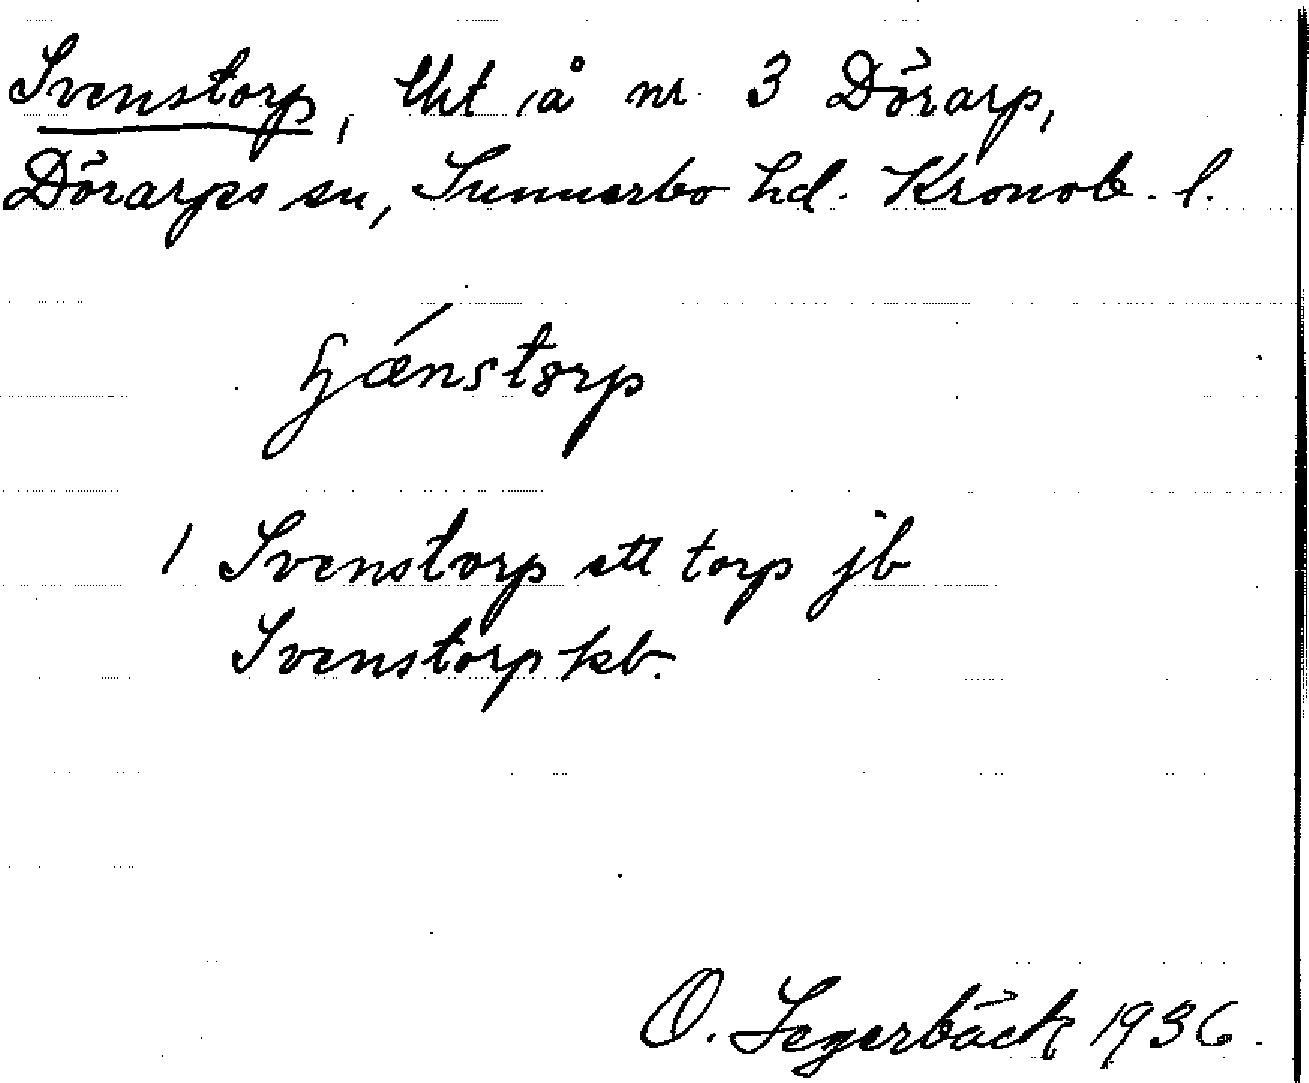 Svenstorp, lht å nr 3 Dörarp,
Dörarps sn, Sunnerbo hd. Kronob. l.
ɧænstorp
1 Svenstorp ett torp jb
Svenstorp kb.
O. Segerbäck 1936.